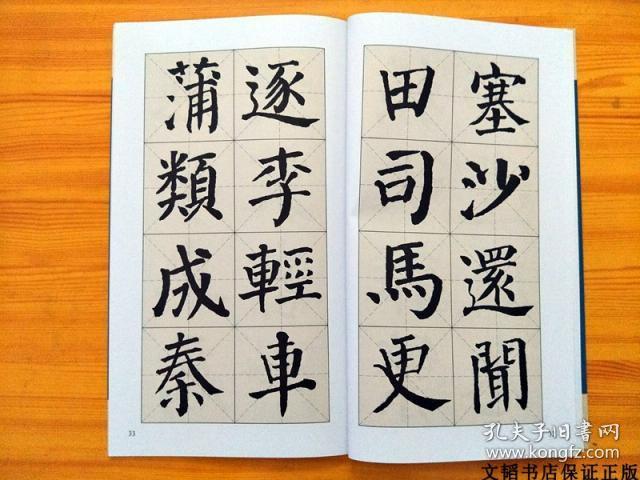 塞沙還聞
田司馬更
逐李輕車
蒲類成秦
33
孔夫子旧书网
www.kongfz.com
文韬书店保证正版